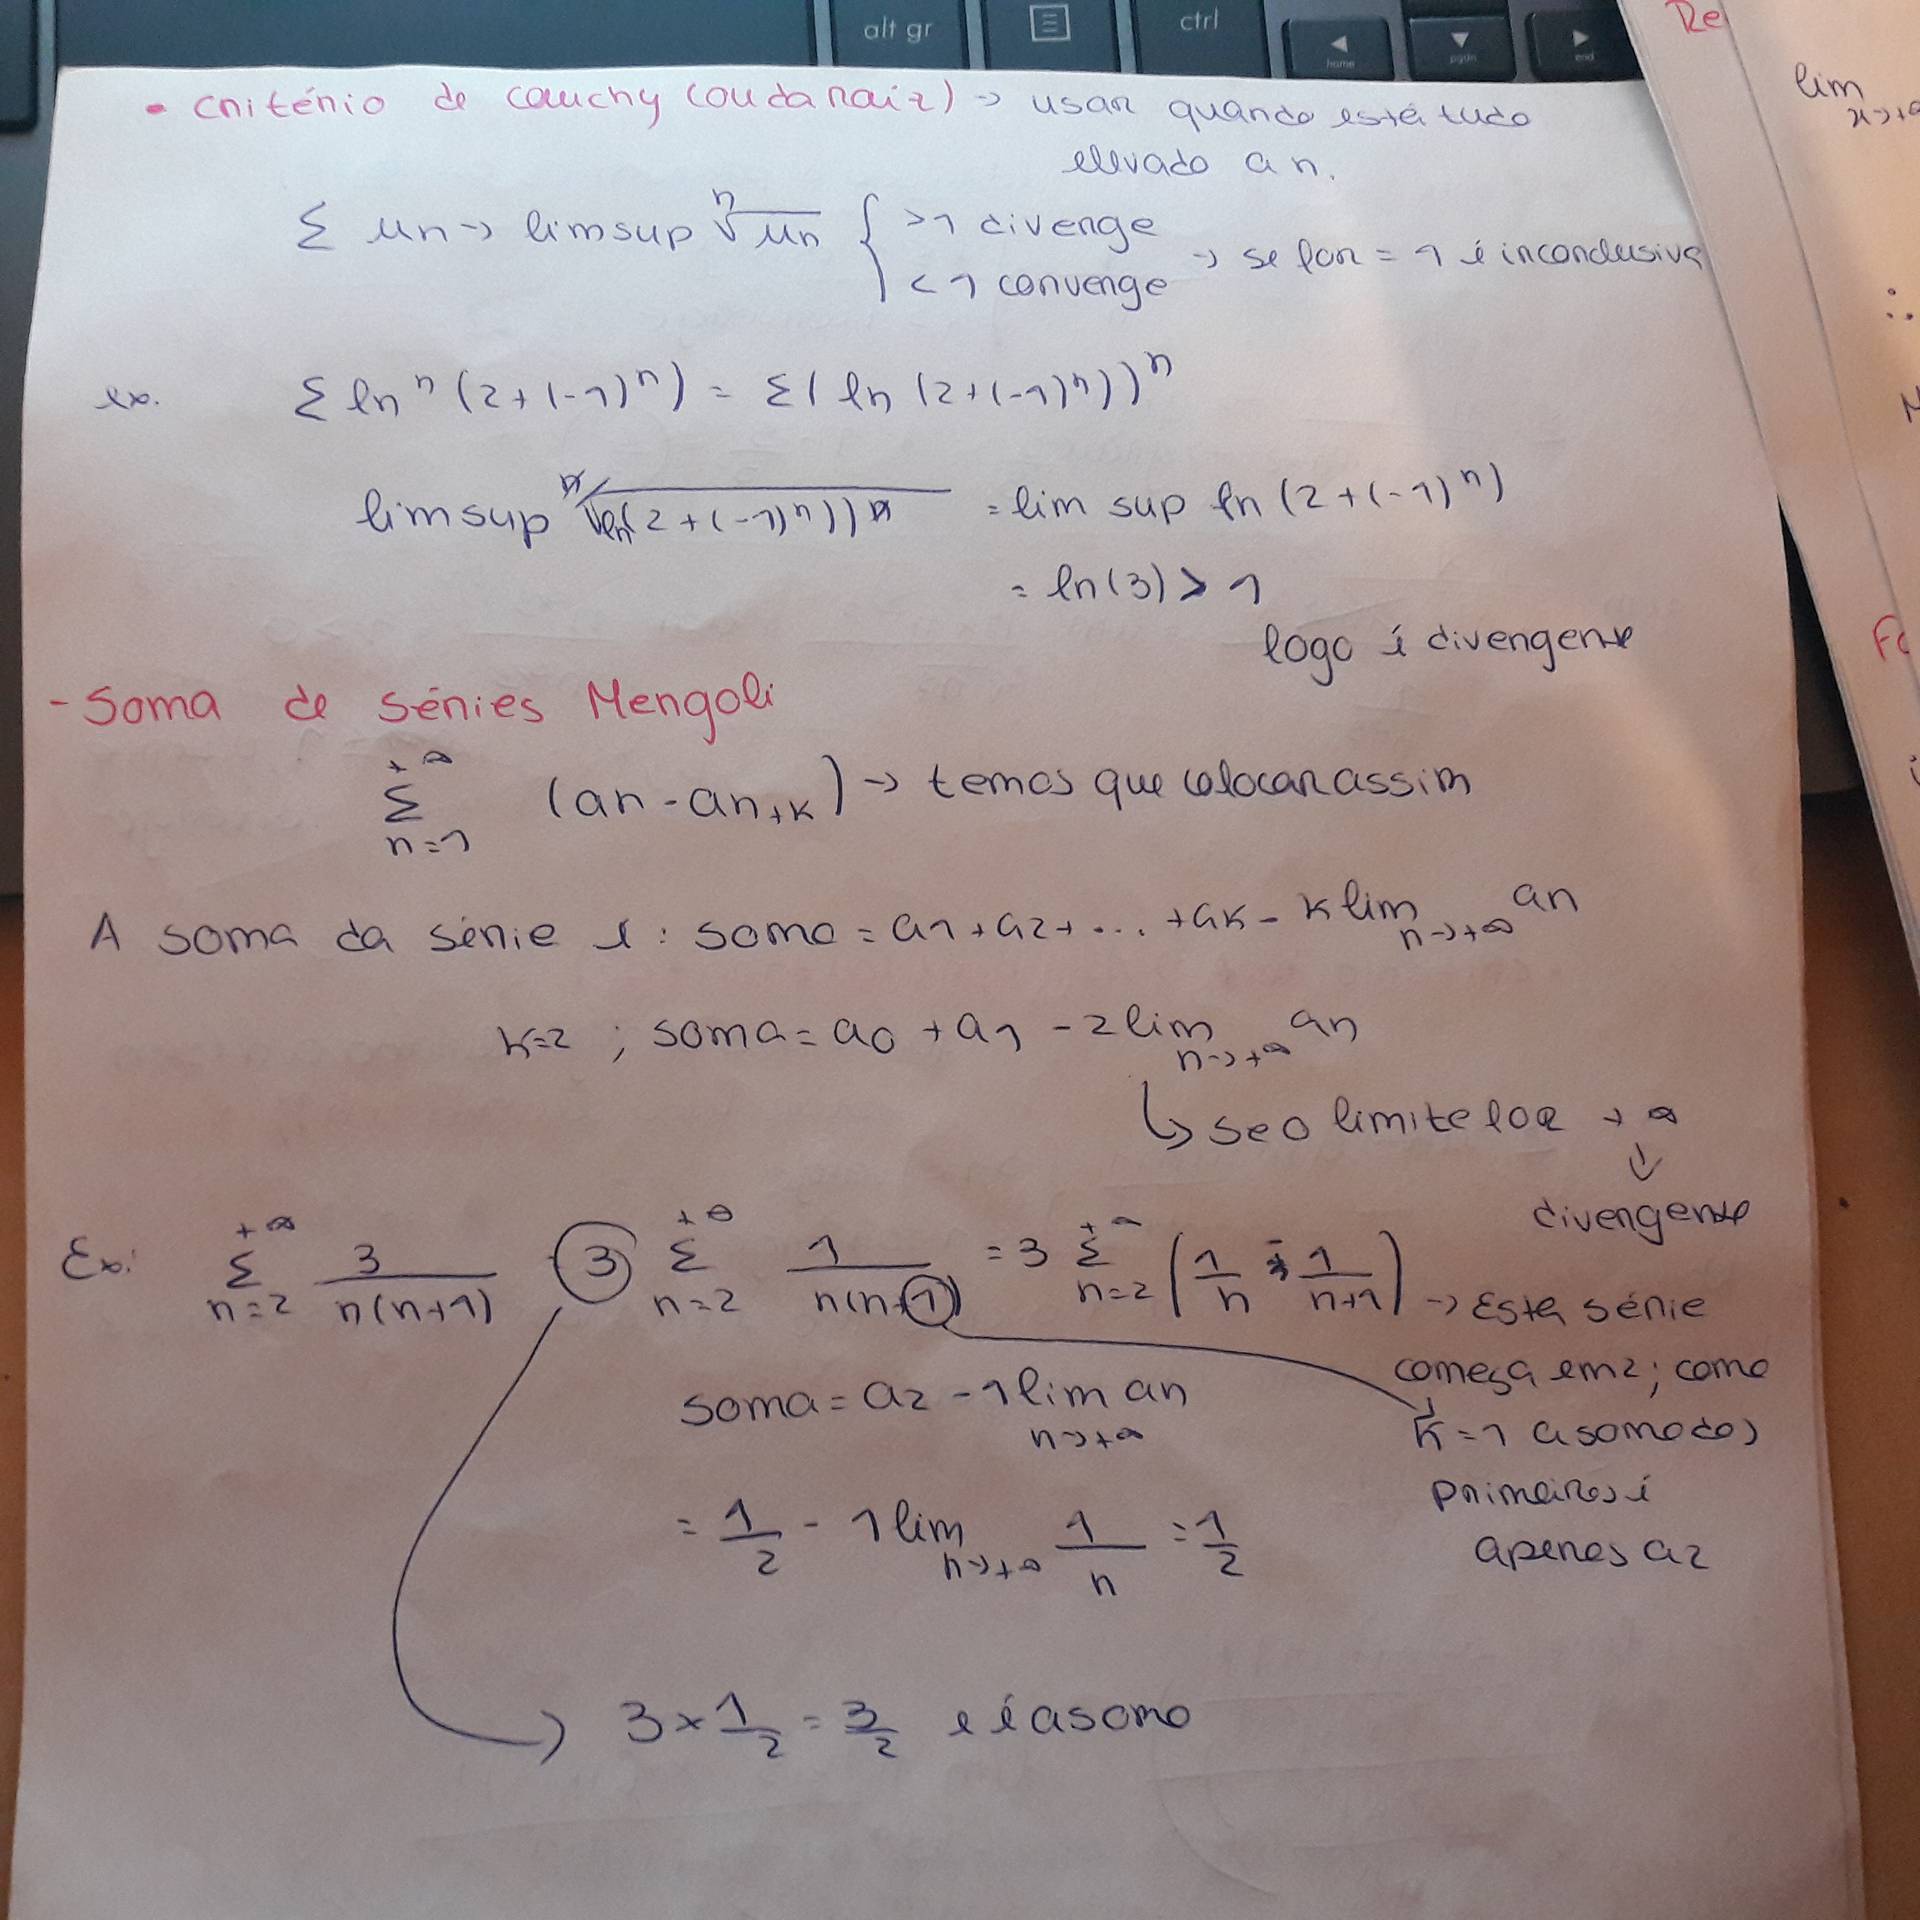 alt gr
ctrl
home
pgdn
end
Re
lim
x→+∞
• Critério de Cauchy (ou da raiz) → usar quando está tudo
elevado a n.
Σ un → lim sup ⁿ√un { >1 diverge
<1 converge → se for = 1 é inconclusivo
ex. Σ lnⁿ(2+(-1)ⁿ) = Σ(ln(2+(-1)ⁿ))ⁿ
lim sup ⁿ√(ln(2+(-1)ⁿ))ⁿ = lim sup ln(2+(-1)ⁿ)
= ln(3) > 1
logo é divergente
- Soma de séries Mengoli
+∞
Σ (an - an+k) → temos que colocar assim
n=1
A soma da série é: soma = a1 + a2 + ... + ak - k lim an
n→+∞
k=2 ; soma = a0 + a1 - 2 lim an
n→+∞
↳ se o limite for +∞
↓
divergente
Ex: +∞ Σ n=2 3/n(n+1) 3 +∞ Σ n=2 1/n(n+1) = 3 +∞ Σ n=2 (1/n - 1/n+1) → Esta série
começa em 2; como
soma = a2 - 1 lim an
n→+∞
k=1 a soma dos
primeiros é
apenas a2
= 1/2 - 1 lim 1/n = 1/2
n→+∞
3 × 1/2 = 3/2 e é a soma